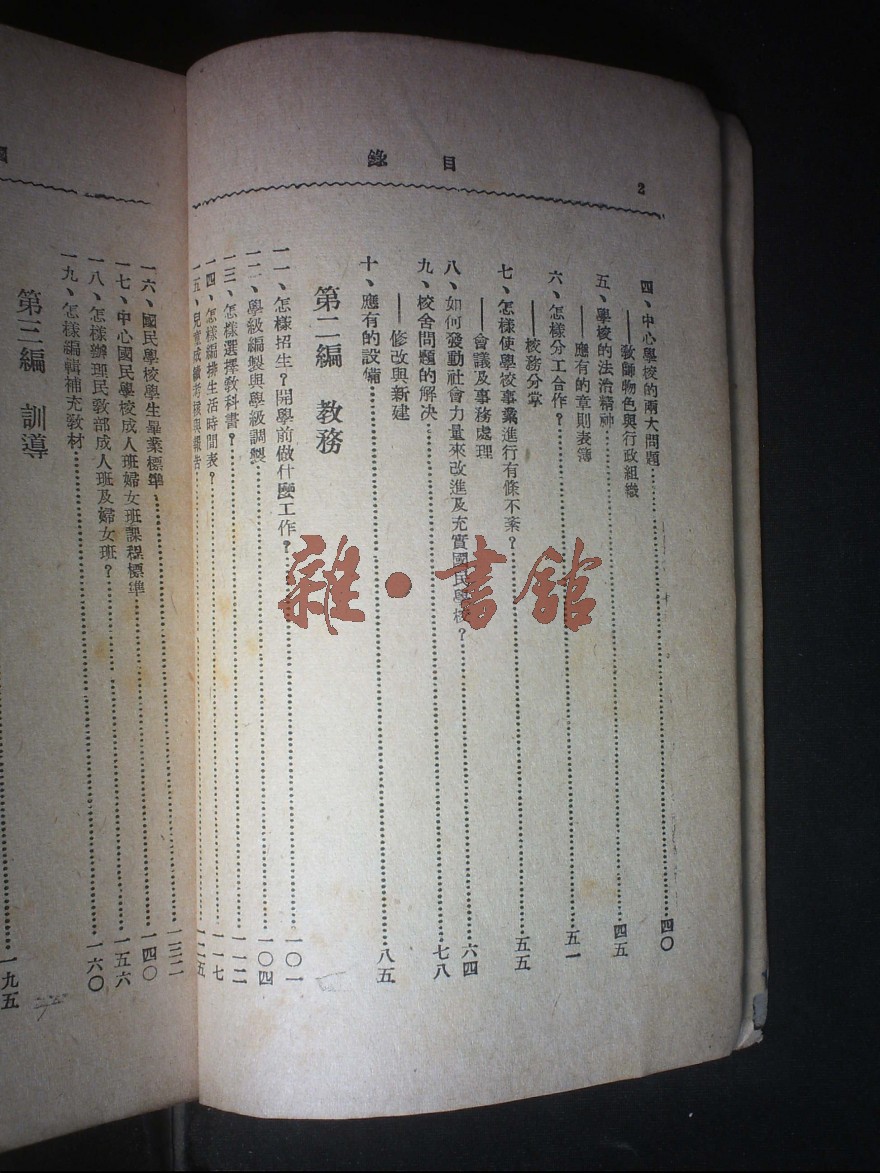 2
目錄
四、中心學校的兩大問題……四〇
——教師物色與行政組織
五、學校的法治精神……四五
——應有的章則表簿
六、怎樣分工合作？……五一
——校務分掌
七、怎樣使學校事業進行有條不紊？……五五
——會議及事務處理
八、如何發動社會力量來改進及充實國民學校？……六四
九、校舍問題的解决……七八
——修改與新建
十、應有的設備……八五
第二編 教務
一一、怎樣招生？開學前做什麼工作？……一〇一
一二、學級編製與學級調製……一〇四
一三、怎樣選擇敎科書？……一一二
一四、怎樣編排生活時間表？……一一七
一五、兒童成績考核與報告……一二五
一六、國民學校學生畢業標準……一三二
一七、中心國民學校成人班婦女班課程標準……一四〇
一八、怎樣辦理民敎部成人班及婦女班？……一五六
一九、怎樣編輯補充敎材……一六〇
第三編 訓導
一九五
雜·書館